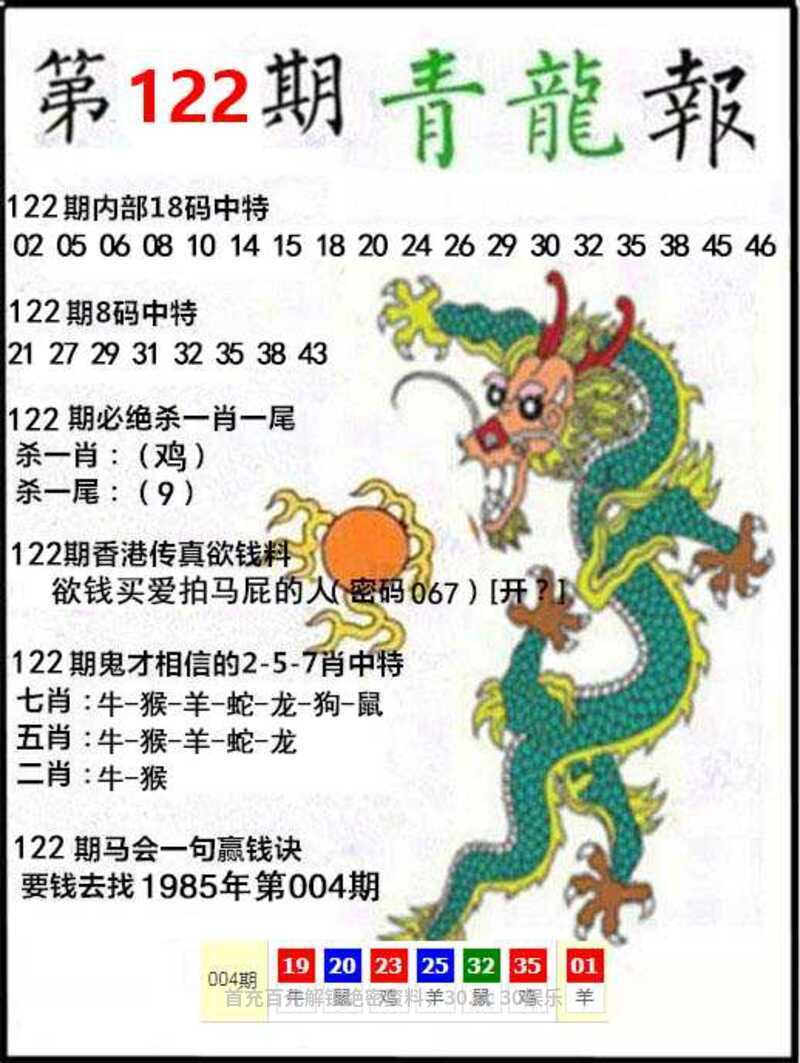 第122期青龍報
122期内部18码中特
02 05 06 08 10 14 15 18 20 24 26 29 30 32 35 38 45 46
122期8码中特
21 27 29 31 32 35 38 43
122期必绝杀一肖一尾
杀一肖：（鸡）
杀一尾：（9）
122期香港传真欲钱料
欲钱买爱拍马屁的人（密码067）[开？]
122期鬼才相信的2-5-7肖中特
七肖：牛-猴-羊-蛇-龙-狗-鼠
五肖：牛-猴-羊-蛇-龙
二肖：牛-猴
122期马会一句赢钱诀
要钱去找1985年第004期
004期 19 20 23 25 32 35 01
牛 鼠 鸡 羊 鼠 鸡 羊